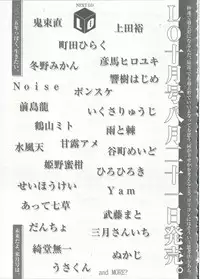 LO
鬼束直
上田裕
町田ひらく
冬野みかん
彦馬ヒロユキ
響樹はじめ
Noise
ポンスケ
前島龍
いくさりゅうじ
鶴山ミト
雨と棘
水風天
甘露アメ
谷町めいど
姫野蜜柑
ひろひろき
せいほうけい
Yam
あって七草
武藤まと
だんちょ
三月さんいち
綺堂無一
ぬかじ
うさくん
and MORE!
LO十月号八月二十一日発売。